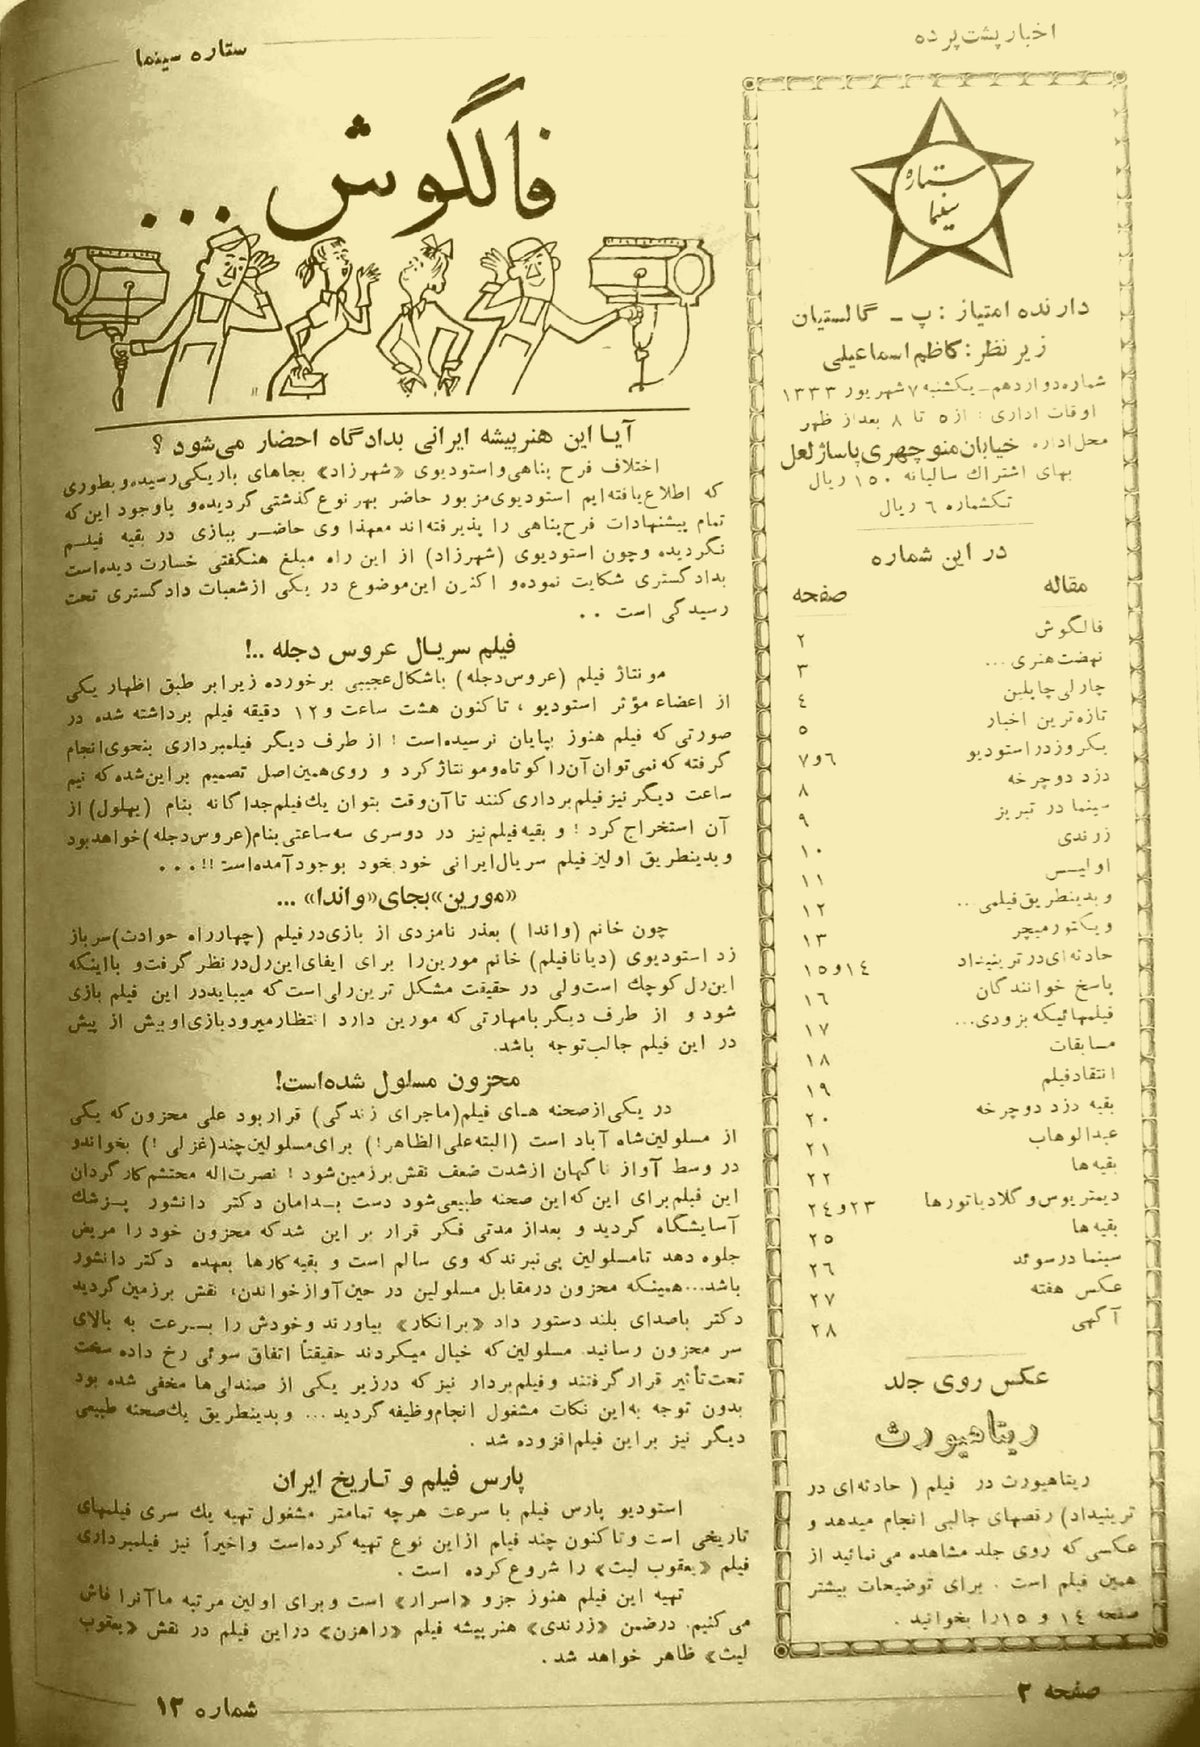 اخبار پشت پرده
ستاره سینما
ستاره
سینما
دارنده امتیاز : پ ـ گالستیان
زیر نظر : کاظم اسماعیلی
شماره دوازدهم ـ یکشنبه ۷ شهریور ۱۳۳۳
اوقات اداری : از ۵ تا ۸ بعد از ظهر
محل اداره خیابان منوچهری پاساژ لعل
بهای اشتراك سالیانه ۱۵۰ ریال
تکشماره ۶ ریال
در این شماره
مقاله صفحه
فالگوش ۲
نهضت هنری ... ۳
چارلی چاپلین ٤
تازه ترین اخبار ٥
یکروز در استودیو ۶و۷
دزد دوچرخه ۸
سینما در تبریز ۹
زرندی ۱۰
اولیس ۱۱
و بدینطریق فیلمی... ۱۲
ویکتور میچر ۱۳
حادثه ای در ترینیداد ۱٤و۱٥
پاسخ خوانندگان ۱۶
فیلمهائیکه بزودی... ۱۷
مسابقات ۱۸
انتقاد فیلم ۱۹
بقیه دزد دوچرخه ۲۰
عبدالوهاب ۲۱
بقیه ها ۲۲
دیمتریوس و گلادیاتورها ۲۳و۲٤
بقیه ها ۲٥
سینما در سوئد ۲۶
عکس هفته ۲۷
آگهی ۲۸
عکس روی جلد
ریتاهیورث
ریتاهیورث در فیلم ( حادثه ای در
ترینیداد) رقصهای جالبی انجام میدهد و
عکسی که روی جلد مشاهده می نمائید از
همین فیلم است . برای توضیحات بیشتر
صفحه ۱٤ و ۱٥ را بخوانید .
فالگوش ...
آیا این هنرپیشه ایرانی بدادگاه احضار می‌شود ؟
اختلاف فرح پناهی و استودیوی «شهرزاد» بجاهای باریکی رسیده و بطوری
که اطلاع یافته ایم استودیوی مزبور حاضر بهر نوع گذشتی گردیده و باوجود این که
تمام پیشنهادات فرح پناهی را پذیرفته اند معهذا وی حاضر ببازی در بقیه فیلم
نگردیده و چون استودیوی (شهرزاد) از این راه مبلغ هنگفتی خسارت دیده است
بدادگستری شکایت نموده و اکنون این موضوع در یکی از شعبات دادگستری تحت
رسیدگی است . .
فیلم سریال عروس دجله ..!
مونتاژ فیلم (عروس دجله) باشکال عجیبی برخورده زیرا بر طبق اظهار یکی
از اعضاء مؤثر استودیو ، تاکنون هشت ساعت و ۱۲ دقیقه فیلم برداشته شده در
صورتی که فیلم هنوز بپایان نرسیده است ! از طرف دیگر فیلمبرداری بنحوی انجام
گرفته که نمی توان آن را کوتاه و مونتاژ کرد و روی همین اصل تصمیم بر این شده که نیم
ساعت دیگر نیز فیلم برداری کنند تا آن وقت بتوان یك فیلم جداگانه بنام (بهلول) از
آن استخراج کرد ! و بقیه فیلم نیز در دوسری سه ساعتی بنام (عروس دجله) خواهد بود
و بدینطریق اولین فیلم سریال ایرانی خود بخود بوجود آمده است !! . . .
«مورین» بجای «واندا» ...
چون خانم (واندا ) بعذر نامزدی از بازی در فیلم (چهارراه حوادث) سر باز
زد استودیوی (دیانا فیلم) خانم مورین را برای ایفای این رل در نظر گرفت و با اینکه
این رل کوچك است ولی در حقیقت مشکل ترین رلی است که میباید در این فیلم بازی
شود و از طرف دیگر بامهارتی که مورین دارد انتظار میرود بازی او بیش از پیش
در این فیلم جالب توجه باشد.
محزون مسلول شده است!
در یکی از صحنه های فیلم (ماجرای زندگی) قرار بود علی محزون که یکی
از مسلولین شاه آباد است (البته علی الظاهر!) برای مسلولین چند (غزلی !) بخواند و
در وسط آواز ناگهان از شدت ضعف نقش بر زمین شود ! نصرت اله محتشم کارگردان
این فیلم برای این که این صحنه طبیعی شود دست بدامان دکتر دانشور پزشك
آسایشگاه گردید و بعد از مدتی فکر قرار بر این شد که محزون خود را مریض
جلوه دهد تا مسلولین پی نبرند که وی سالم است و بقیه کارها بعهده دکتر دانشور
باشد... همینکه محزون در مقابل مسلولین در حین آواز خواندن، نقش بر زمین گردید
دکتر باصدای بلند دستور داد «برانکار» بیاورند و خودش را بسرعت به بالای
سر محزون رسانید. مسلولین که خیال میکردند حقیقتاً اتفاق سوئی رخ داده سخت
تحت تأثیر قرار گرفتند و فیلمبردار نیز که در زیر یکی از صندلی ها مخفی شده بود
بدون توجه به این نکات مشغول انجام وظیفه گردید ... و بدینطریق یك صحنه طبیعی
دیگر نیز بر این فیلم افزوده شد .
پارس فیلم و تاریخ ایران
استودیو پارس فیلم با سرعت هرچه تمامتر مشغول تهیه یك سری فیلمهای
تاریخی است و تا کنون چند فیلم از این نوع تهیه کرده است و اخیراً نیز فیلمبرداری
فیلم «یعقوب لیث» را شروع کرده است .
تهیه این فیلم هنوز جزو «اسرار» است و برای اولین مرتبه ما آنرا فاش
می کنیم. در ضمن «زرندی» هنرپیشه فیلم «راهزن» در این فیلم در نقش «یعقوب
لیث» ظاهر خواهد شد .
صفحه ۲
شماره ۱۲